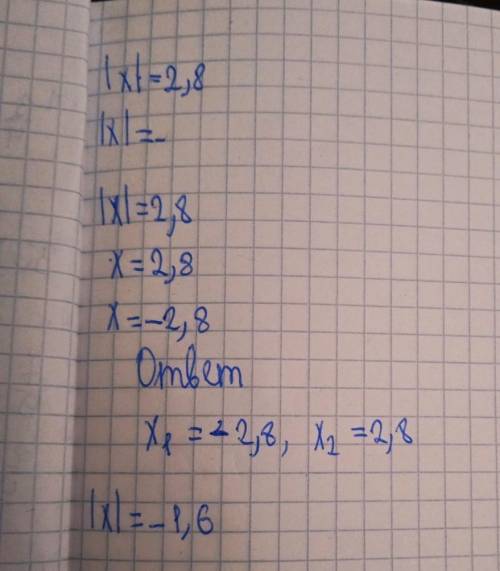 |x|=2,8
|x|=-
|x|=2,8
x=2,8
x=-2,8
Ответ
x₁ = -2,8, x₂ = 2,8
|x|=-1,6